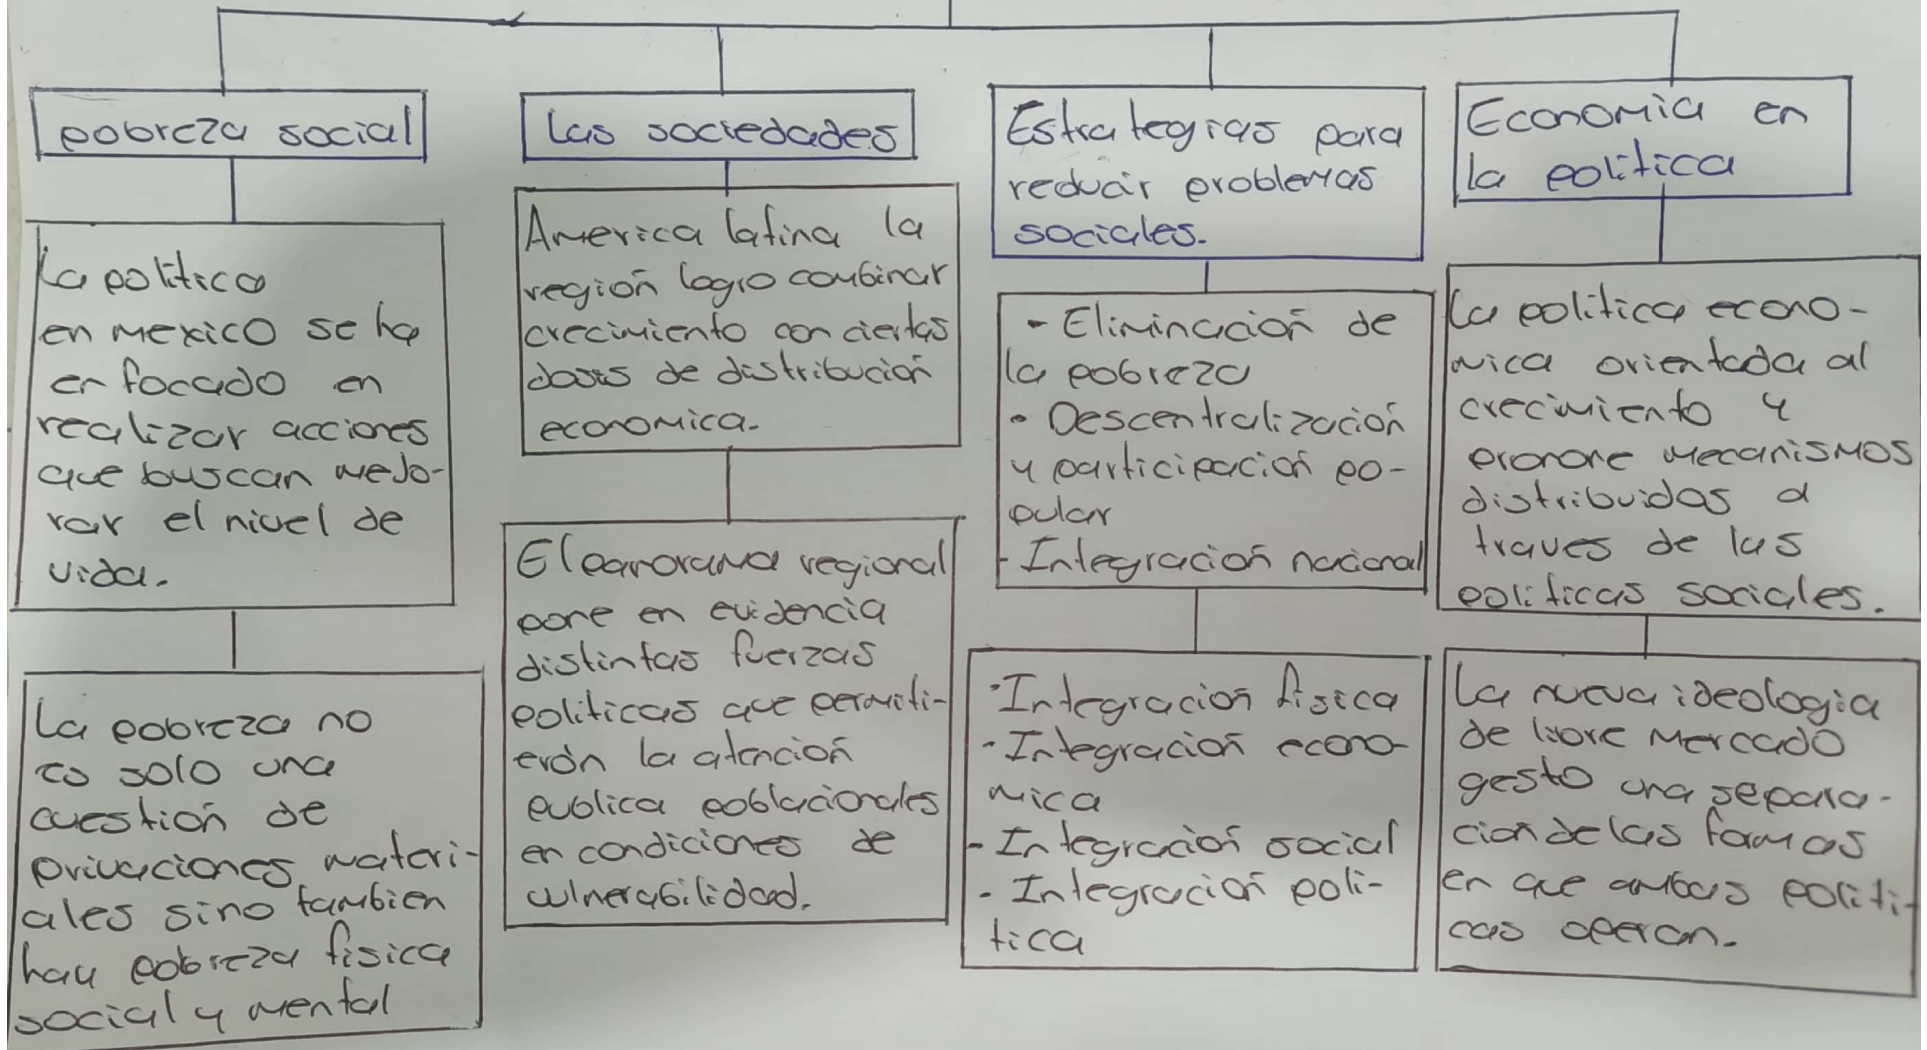 pobreza social
La politica
en mexico se ha
enfocado en
realizar acciones
que buscan mejo-
rar el nivel de
vida.
La pobreza no
es solo una
cuestión de
privaciones materi-
ales sino tambien
hay pobreza fisica
social y mental
Las sociedades
America latina la
región logro combinar
crecimiento con ciertas
dosis de distribución
economica.
El panorama regional
pone en evidencia
distintas fuerzas
politicas que permiti-
erón la atención
publica poblacionales
en condiciones de
vulnerabilidad.
Estrategias para
reducir problemas
sociales.
- Eliminación de
la pobreza
• Descentralización
y participación po-
pular
- Integración nacional
· Integración fisica
- Integración econo-
mica
- Integración social
- Integración poli-
tica
Economia en
la politica
La politica econo-
mica orientada al
crecimiento y
propone mecanismos
distribuidos a
traves de las
politicas sociales.
La nueva ideologia
de libre mercado
gesto una separa-
cion de las formas
en que ambas politi-
cas operan.